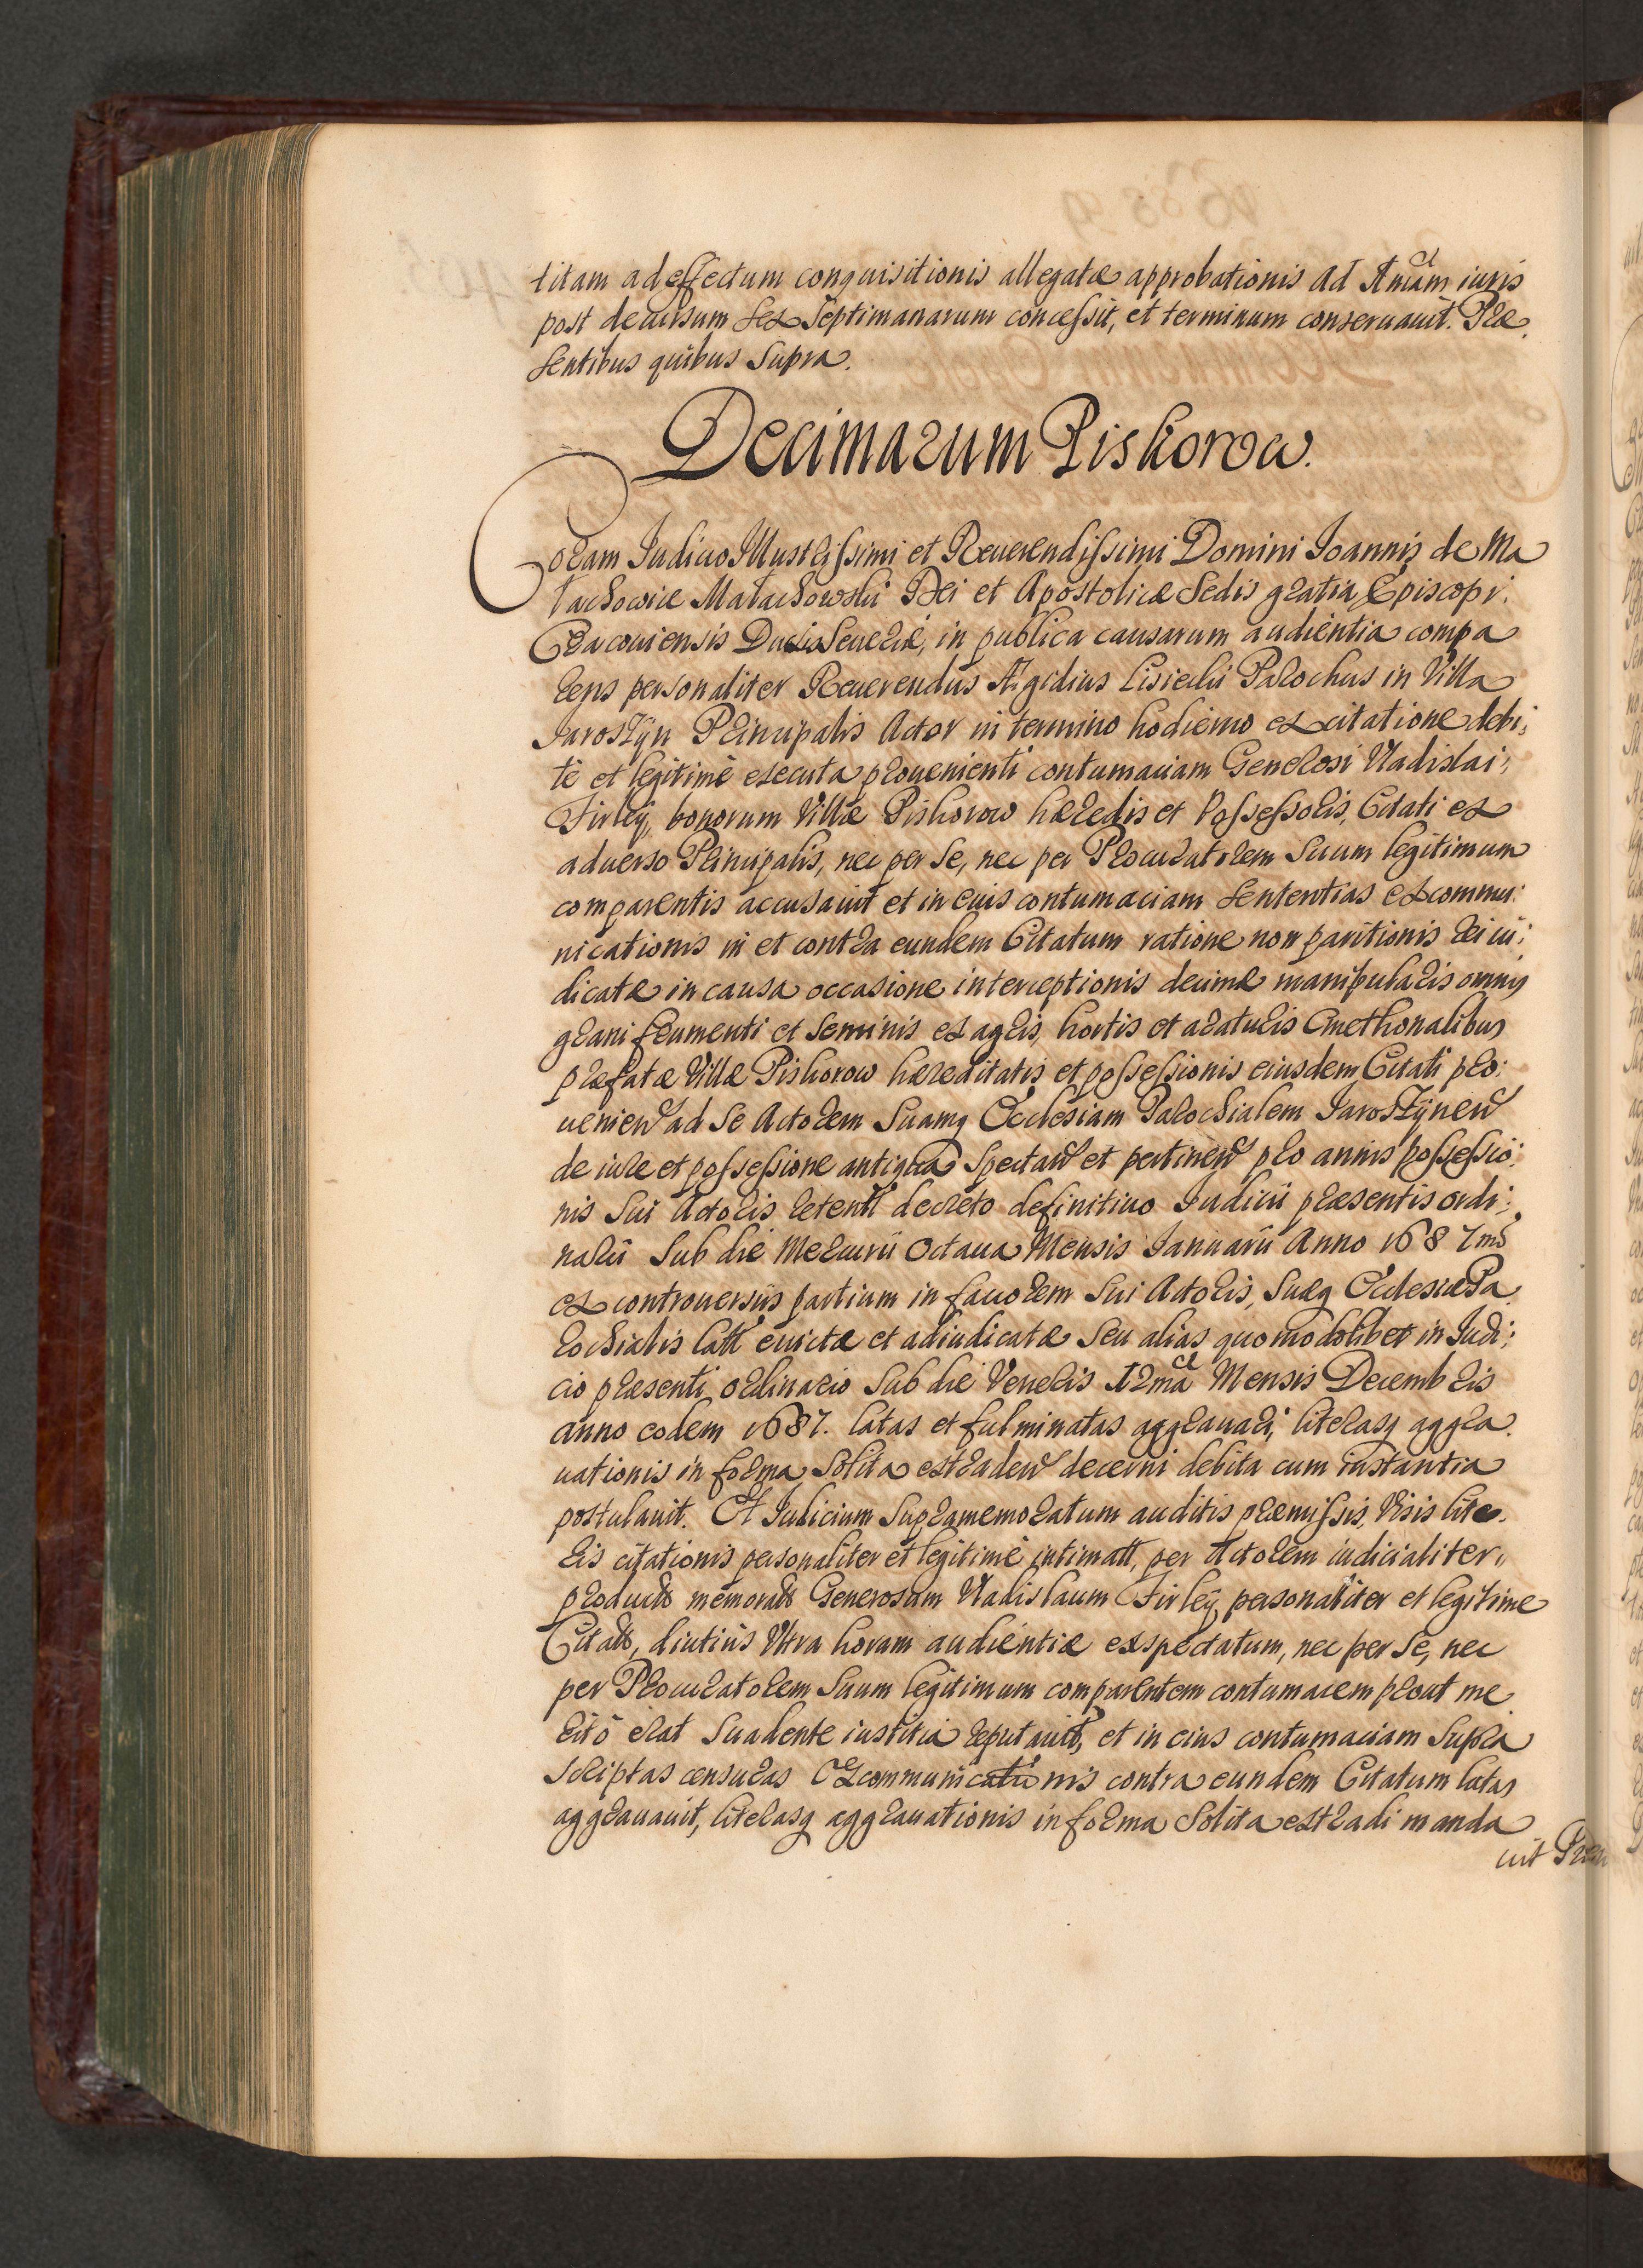 titam ad effectum conquisitionis allegatæ approbationis ad Amam iuris
post decursum sex Septimanarum concessit, et terminum conseruauit. Præ
sentibus quibus supra.
Decimarum Piskorow.
Coram Iudicio Illustrissimi et Reuerendissimi Domini Ioannis de Ma
łachowice Małachowski Dei et Apostolicæ Sedis gratia Episcopi
Cracouiensis Ducis Seueriæ, in publica causarum audientia compa
rens personaliter Reuerendus Ægidius Lisiecki Parochus in Villa
Iaroszÿn Principalis Actor in termino hodierno ex citatione debi:
te et legitimè executa prouenienti contumaciam Generosi Vladislai
Firleÿ, bonorum Villæ Piskorow hæredis et Possessoris, Citati ex
aduerso Principalis, nec per se, nec per Procuratorem suum legitimum
comparentis accusauit et in eius contumaciam sententias excommu:
nicationis in et contra eundem Citatum ratione non paritionis rei iu:
dicatæ in causa occasione interceptionis decimæ manipularis omnis
grani frumenti et seminis ex agris, hortis et araturis Cmethonalibus
præfatæ Villæ Piskorow hæreditatis et possessionis eiusdem Citati pro:
uenien ad se Actorem suamq Ecclesiam Parochialem Iaroszÿnen
de iure et possessione antiqua spectan et pertinen pro annis possessio:
nis sui Actoris retent decreto definitiuo Iudicii præsentis ordi:
narii sub die Mercurii Octaua Mensis Ianuarii Anno 1687mo
ex controuersiis partium in fauorem sui Actoris, suæq Ecclesiæ Pa
rochialis latt euictæ et adiudicatæ seu alias quomodolibet in Iudi:
cio præsenti ordinario sub die Veneris 12ma Mensis Decembris
anno eodem 1687. latas et fulminatas aggrauari, literasq aggra
uationis in forma solita extraden decerni debita cum instantia
postulauit. Et Iudicium supramemoratum auditis præmissis, visis lite
ris citationis personaliter et legitimè intimatt, per Actorem iudicialiter
product memorat Generosum Vladislaum Firleÿ, personaliter et legitime
Citat, diutiùs Vltra horam audientiæ exspectatum, nec per se, nec
per Procuratorem suum legitimum comparentem contumacem prout me
ritò erat suadente iustitia reputauit, et in eius contumaciam supra
scriptas censuras Excommunicationis contra eundem Citatum latas
aggrauauit, literasq aggrauationis in forma solita extradi manda
uit